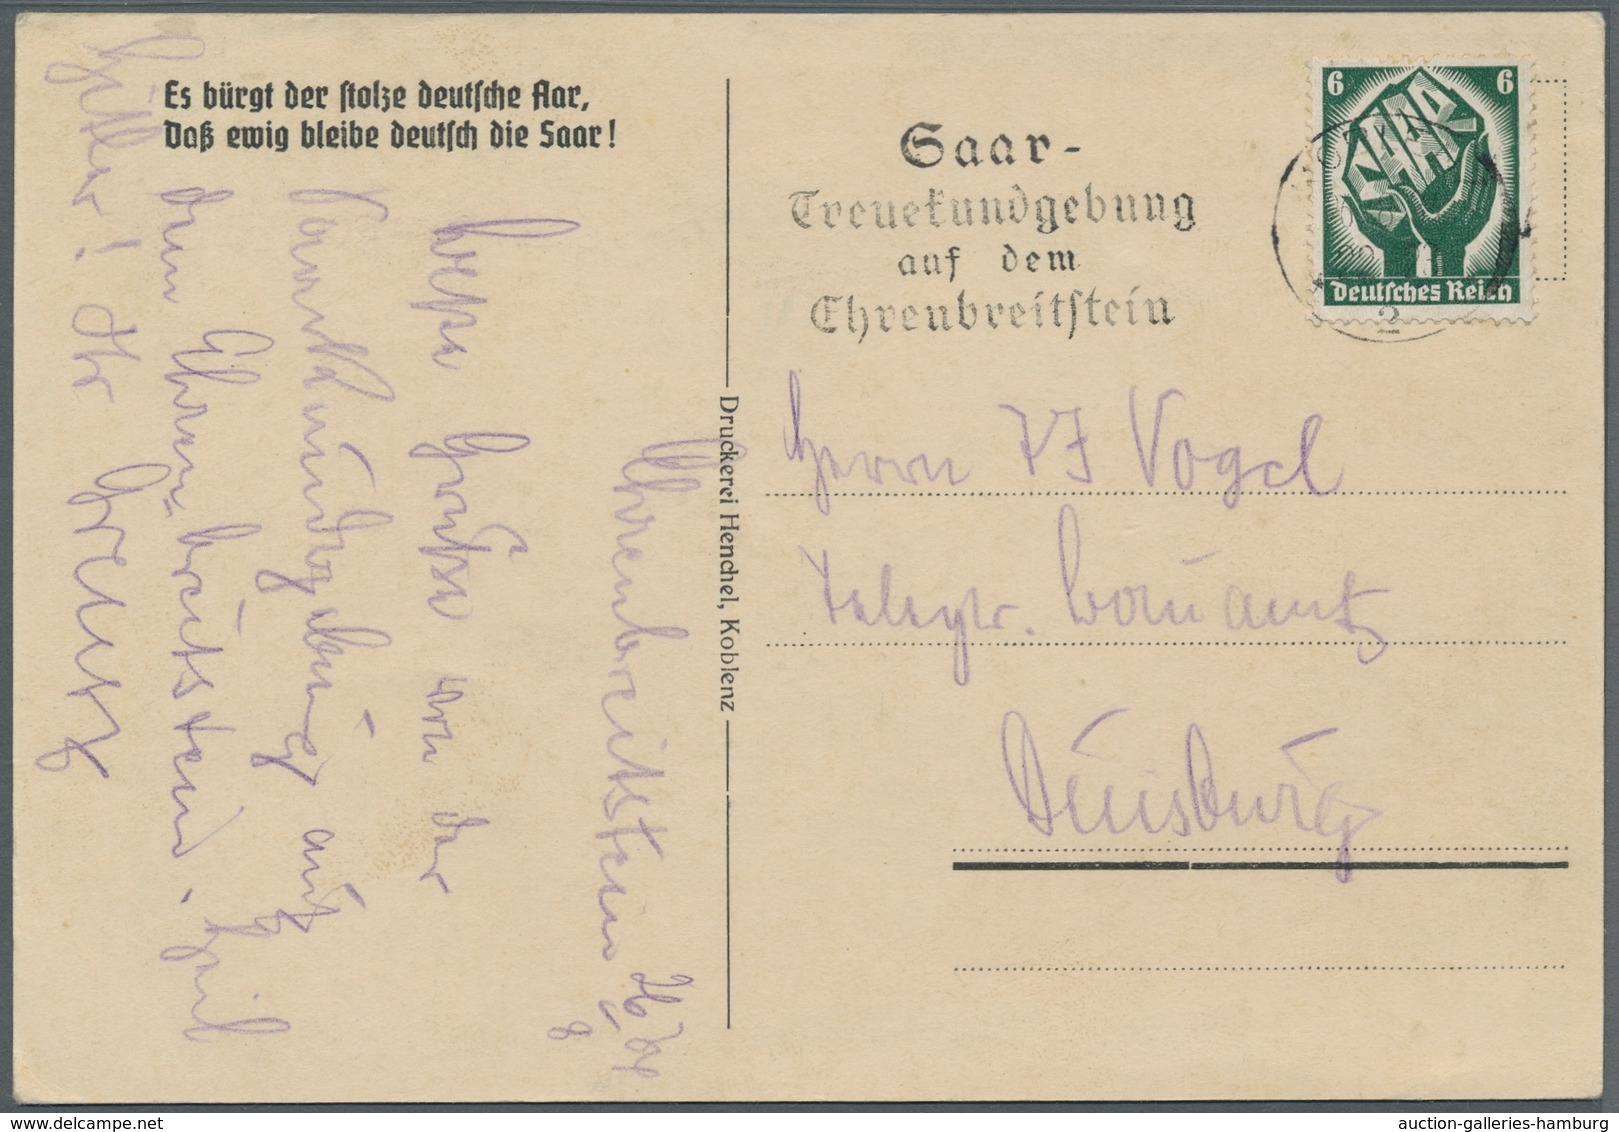 Es bürgt der stolze deutsche Aar,
Daß ewig bleibe deutsch die Saar!
Ehrenbreitstein 26/8 34
Beste Grüße von der
Saarkundgebung auf
dem Ehrenbreitstein. Heil
Hitler! Ihr
Druckerei Henchel, Koblenz
Saar-
Treuekundgebung
auf dem
Ehrenbreitstein
6 6
SAAR
Deutsches Reich
2
Herrn Vogel
Telegr. Bauamt
Duisburg
auction-galleries-hamburg